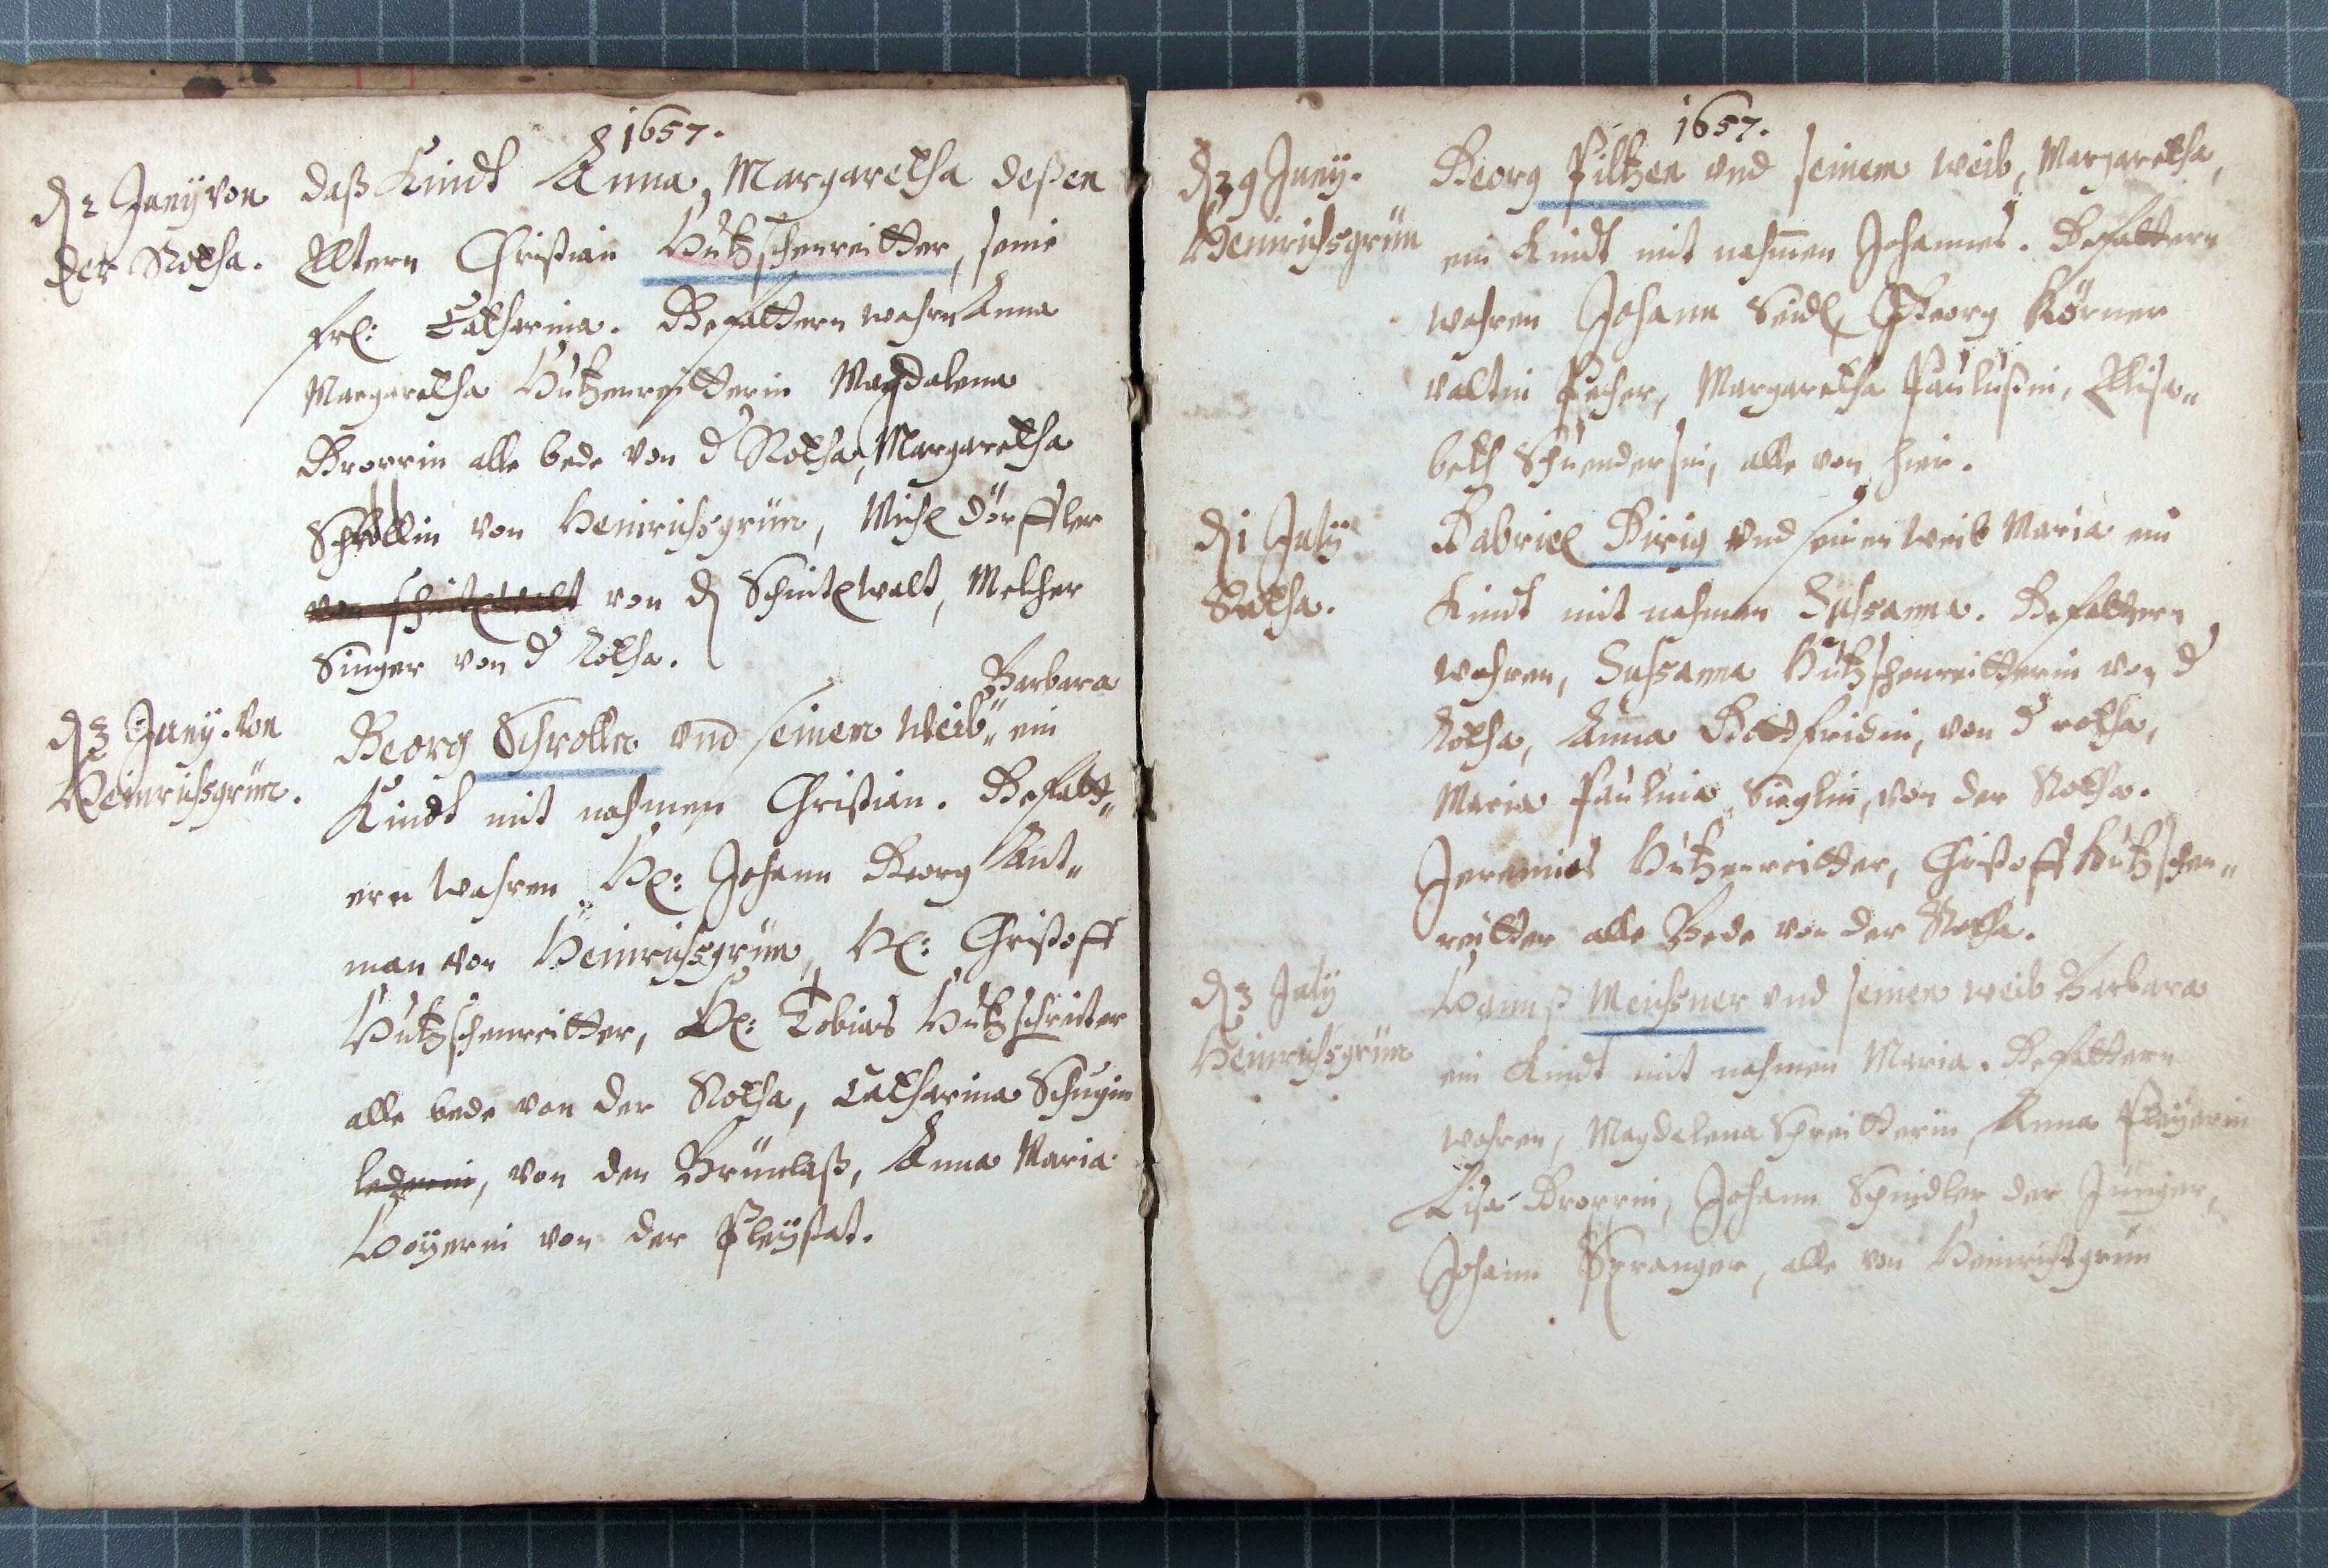 1657.
d 2 Juny von
der Rotha.
daß Kindt Anna Margaretha deßen
Eltern Christian Hutzschenreitter, seine
frl: Catharina. Gefattern wahrn Anna
Margaretha Hutzenreitterin Magdalena
Brorrin alle bede von d Rotha, Margaretha
Schrollin von Heinrichsgrün, Michl Dörffler
von Schintlwalt von d Schintlwalt, Melcher
Singer von d Rotha.
d 3 Juny. Von
Heinrichsgrün.
Barbara
Georg Schroller vnd seinem Weib" ein
Kindt mit nahmen Christian. Gefatt„
ern wahren Hl: Johann Georg Ant„
man von Heinrichsgrün, Hl: Christoff
Hutzschenreitter, Hl: Tobias Hutzschreiter
alle bede von der Rotha, Catharina Schugin
lederin, von den Grünlaß, Anna Maria
Hoyerin von der Pleystat.
1657.
d 29 Juny.
Heinrichsgrün
Georg Piltzen vnd seinem weib, Margaretha,
ein Kindt mit nahmen Johannes. Gefattern
wahren Johann Seidl, Georg Körner
Valtin Pecher, Margaretha Paulußin, Elisa„
beth Schuendersin, alle von hier.
d 1 July
Rotha.
Gabriel Girig vnd seinen Weib Maria ein
Kindt mit nahmen Sussanna. Gefattern
wahren, Sussanna Hutzschenreitterin von d
Rotha, Anna Gottfridin, von d rotha,
Maria Paulina Sieglin, von der Rotha.
Jeremias Hutzenreitter, Christoff Hutzschen„
reitter alle Bede von der Rotha.
d 3 July
Heinrichsgrün
Hannß Meichsner vnd seinen weib Barbara
ein Kindt mit nahmen Maria. Gefattern
wahren, Magdalena Schreitterin, Anna Pleyerin
Lisa Brorrin, Johann Schindler der Jünger,
Johann Spranger, alle von Heinrichsgrün